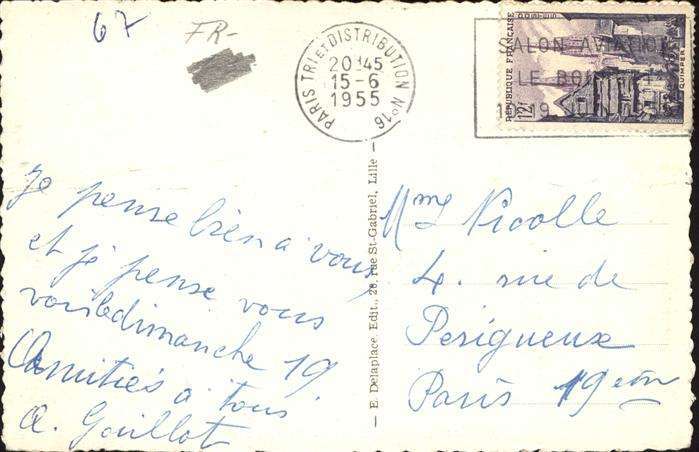 67
FR-
PARIS TRI ET DISTRIBUTION No 16
20H45
15-6
1955
SALON AVIATION
LE BOU
19 JUIN
RÉPUBLIQUE FRANÇAISE
12F
QUIMPER
je pense bien à vous,
et je pense vous
voir le dimanche 19
Amitiés à tous
A. Gouillot
— E. Delaplace, Edit., 28, rue St-Gabriel, Lille —
Mme Nicolle
4. rue de
Perigueux
Paris 19eme